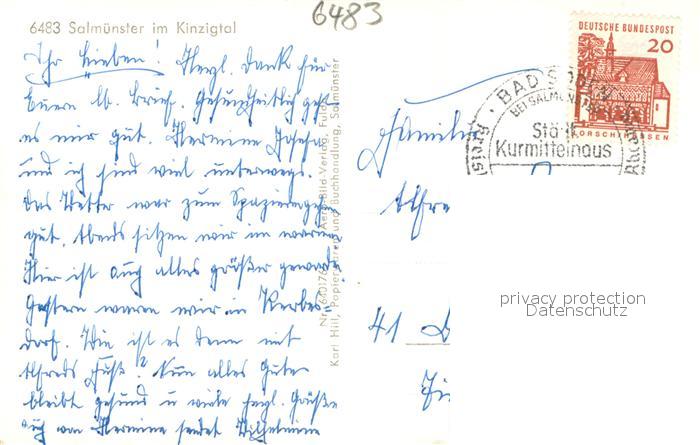 6483
6483 Salmünster im Kinzigtal
Ihr Lieben! Herzl. Dank für
Euern lb. Brief. Gesundheitlich geht
es mir gut. Hermine Josefa
und ich sind viel unterwegs.
Das Wetter war zum Spazierengehen
gut. Abends sitzen wir im warmen
Hier ist auch alles größer geworden
Gestern waren wir in Kerbers-
dorf. Wie ist es denn mit
Alfreds Fuß? Nun alles Gute
bleibt gesund u viele herzl. Grüße
auch von Hermine sendet Wilhelmine
Karl Hill, Papierwaren und Buchhandlung, Salmünster
Aero-Bild-Verlag, Fulda
DEUTSCHE BUNDESPOST
20
BAD SODEN
BEI SALMÜNSTER
Kurmittelhaus
Kreis
Familie
Alfre
41 D
privacy protection
Datenschutz